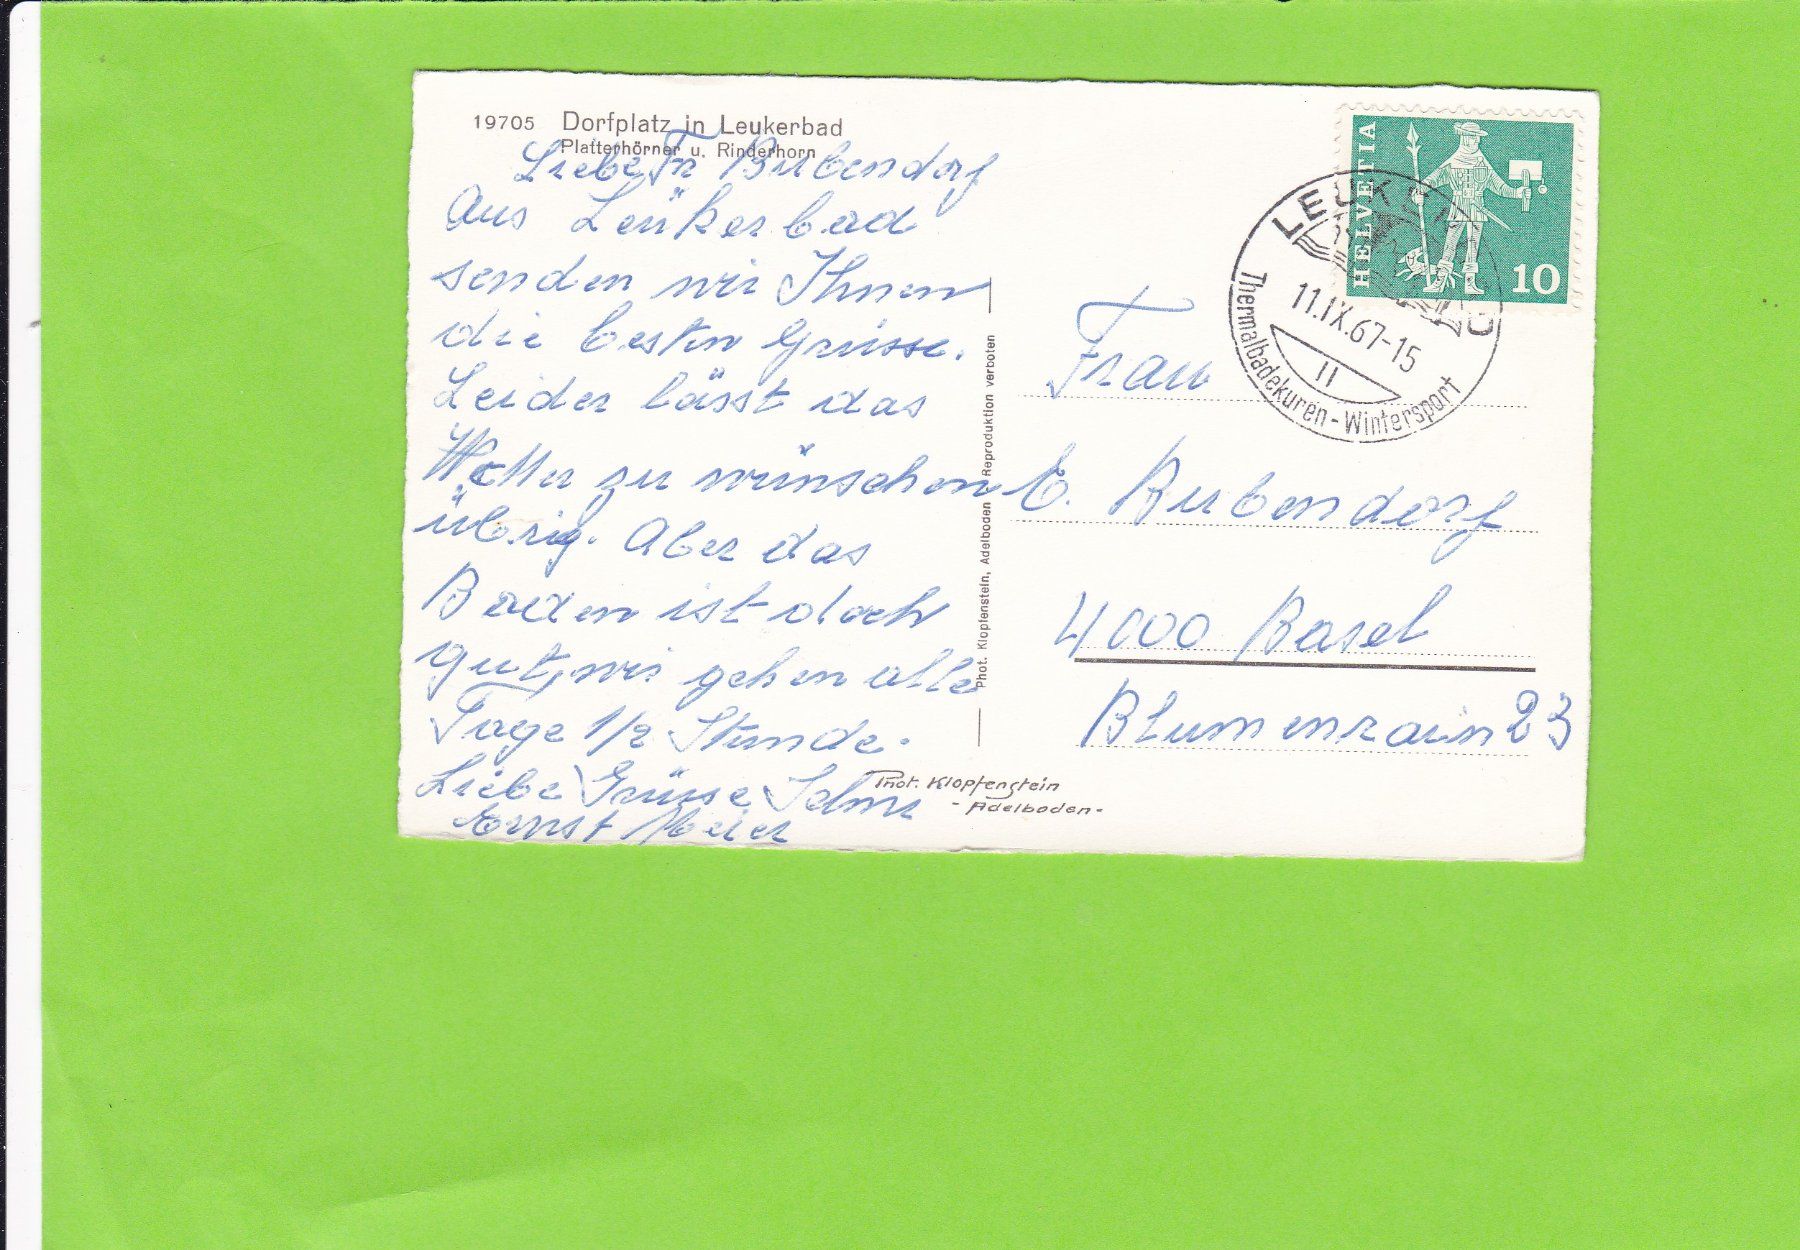 19705 Dorfplatz in Leukerbad
Platterhörner u. Rinderhorn
Liebe Fr Bubendorf
Aus Leükerbad
senden wir Ihnen
die besten Grüsse.
Leider lässt das
Wetter zu wünschen
übrig. Aber das
Baden ist doch
gut, wir gehen alle
Tage 1/2 Stunde.
Liebe Grüsse
Ernst Meier
Phot. Klopfenstein, Adelboden Reproduktion verboten
Phot. Klopfenstein
- Adelboden -
HELVETIA
10
LEUKERBAD
11.IX.67-15
II
Thermalbadekuren - Wintersport
Frau
E. Bubendorf
4000 Basel
Blumenrain 23